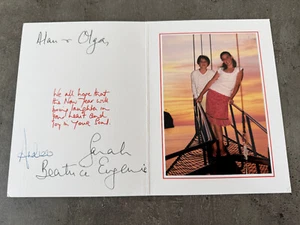 Alan & Olga,
We all hope that
the New Year will
bring laughter in
your heart and
joy in your soul.
Andrew
Sarah
Beatrice Eugenie